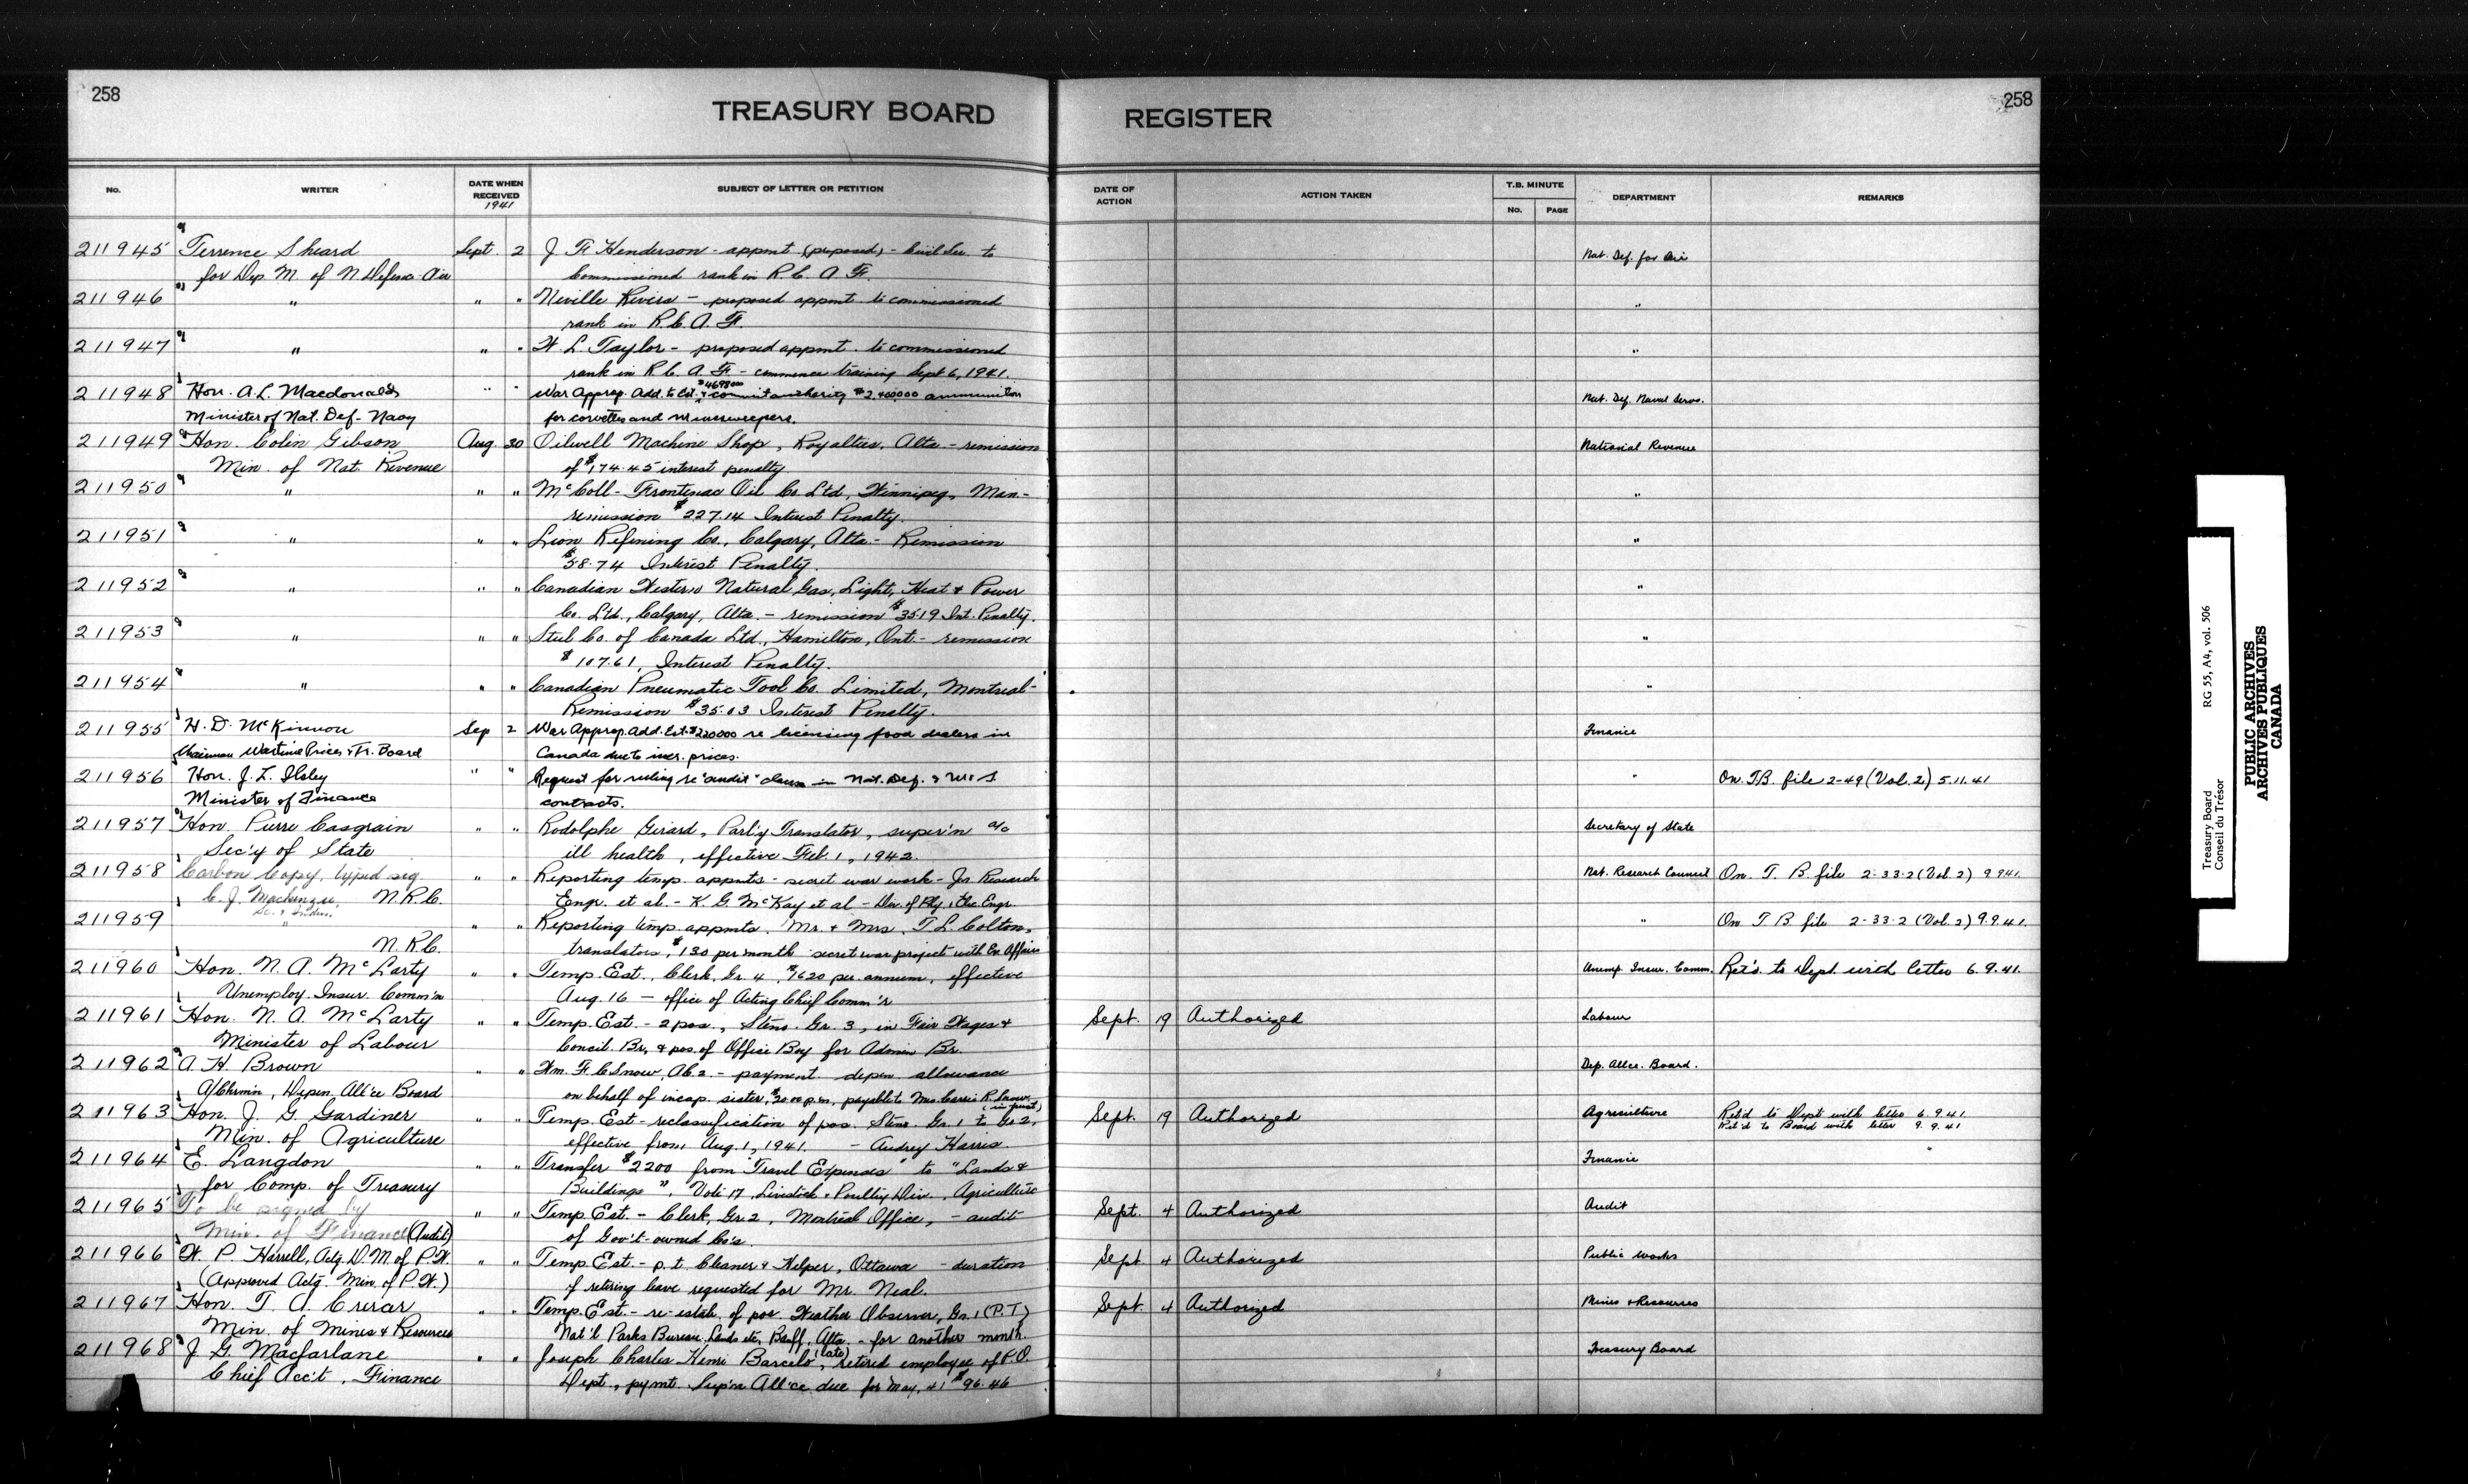 258
TREASURY BOARD
REGISTER
258
No.
WRITER
DATE WHEN RECEIVED
1941
SUBJECT OF LETTER OR PETITION
DATE OF ACTION
ACTION TAKEN
T.B. MINUTE
No.
PAGE
DEPARTMENT
REMARKS
211945 Terrence Sheard Sept. 2 J. F. Henderson - appmt (proposed) - Civil Sec. to Nat. Def. for Air
for Dep M. of N Defence - Air commissioned rank in R.C.A.F.
211946 " " " Neville Rivers - proposed appmt. to commissioned "
rank in R.C.A.F.
211947 " " " W. L. Taylor - proposed appmt. to commissioned "
rank in R.C.A.F. - commence training Sept 6, 1941.
211948 Hon. A.L. Macdonald " " War Approp. Add. to Est. $4698000 & commit authority $2,400,000 ammunition Nat. Def. Naval Servs.
Minister of Nat. Def - Navy for corvettes and minesweepers.
211949 Hon. Colin Gibson Aug. 30 Oilwell Machine Shop, Royalties, Alta - remission National Revenue
Min. of Nat. Revenue of $174.45 interest penalty
211950 " " " McColl-Frontenac Oil Co Ltd, Winnipeg, Man- "
remission $227.14 Interest Penalty.
211951 " " " Lion Refining Co., Calgary, Alta. - Remission "
$58.74 Interest Penalty.
211952 " " " Canadian Western Natural Gas, Light, Heat & Power "
Co. Ltd., Calgary, Alta. - remission $35.19 Int. Penalty.
211953 " " " Steel Co. of Canada Ltd., Hamilton, Ont. - remission "
$107.61, Interest Penalty.
211954 " " " Canadian Pneumatic Tool Co. Limited, Montreal - "
Remission $35.03 Interest Penalty.
211955 H. D. McKinnon Sep 2 War Approp. Add. Est. $220000 re licensing food dealers in Finance
Chairman Wartime Prices & Tr. Board Canada due to incr. prices.
211956 Hon. J. L. Ilsley " " Request for ruling re "audit" clause in Nat. Def. & M & S " On T.B. file 2-49 (Vol. 2) 5.11.41
Minister of Finance contracts.
211957 Hon. Pierre Casgrain " " Rodolphe Girard, Parl'y Translator, super'n a/c Secretary of State
Sec'y of State ill health, effective Feb. 1, 1942.
211958 Carbon Copy, typed sig. " " Reporting temp. appmts - secret war work - Jr. Research Nat. Research Council On T. B. file 2-33-2 (Vol. 2) 9.9.41.
C. J. Mackenzie, N.R.C. Engr. et al. - K. G. McKay et al - Div. of Phy. & Elec. Engr.
211959 " " " Reporting temp. appmts. Mr. & Mrs. T. L. Colton, " On T. B. file 2-33-2 (Vol. 2) 9.9.41.
N.R.C. translators, $130 per month - secret war project with Ex. Affairs
211960 Hon. N. A. McLarty " " Temp. Est., Clerk, Gr. 4, $1620 per annum, effective Unemp. Insur. Comm. Ret'd. to Dept. with letter 6.9.41.
Unemploy. Insur. Comm'n Aug. 16 - office of Acting Chief Comm'r
211961 Hon. N. A. McLarty " " Temp. Est. - 2 pos., Steno. Gr. 3, in Fair Wages & Sept. 19 Authorized Labour
Minister of Labour Concil. Br., & pos. of Office Boy for Admin Br.
211962 A. H. Brown " " Wm. F. C Snow, AB.2. - payment depen. allowance Dep. Allce. Board.
A/Chrmn, Depen. All'ce Board on behalf of incap. sister, $20.00 p.m. payable to Mrs. Carrie R. Snow
211963 Hon. J. G. Gardiner " " Temp. Est - reclassification of pos. Steno. Gr. 1 to Gr 2, Sept. 19 Authorized Agriculture Ret'd to Dept with letter 6.9.41
Min. of Agriculture effective from Aug. 1, 1941. - Audrey Harris Ret'd to Board with letter 9.9.41
211964 E. Langdon " " Transfer $2200 from "Travel Expenses" to "Lands & Finance
for Comp. of Treasury Buildings", Vote 17, Livestock & Poultry Div., Agriculture
211965 To be signed by " " Temp. Est. - Clerk, Gr. 2, Montreal Office, - audit Sept. 4 Authorized Audit
Min. of Finance (Audit) of Gov't-owned Co's.
211966 W. P. Harrell, Actg. D.M. of P.W. " " Temp. Est. - p.t. Cleaner & Helper, Ottawa - duration Sept. 4 Authorized Public Works
(Approved Actg. Min. of P.W.) of retiring leave requested for Mr. Neal.
211967 Hon. T. A. Crerar " " Temp. Est. - re-estab. of pos. Weather Observer, Gr. 1 (P.T) Sept. 4 Authorized Mines & Resources
Min. of Mines & Resources Nat'l Parks Bureau, Lands etc, Banff, Alta. - for another month.
211968 J G. Macfarlane " " Joseph Charles Henri Barcelo (late), retired employee of P.O. Treasury Board
Chief Acc't, Finance Dept., pymt. Sup'n All'ce due for May, 41 $96.46
Treasury Board
Conseil du Trésor
RG 55, A4, vol. 506
PUBLIC ARCHIVES
ARCHIVES PUBLIQUES
CANADA